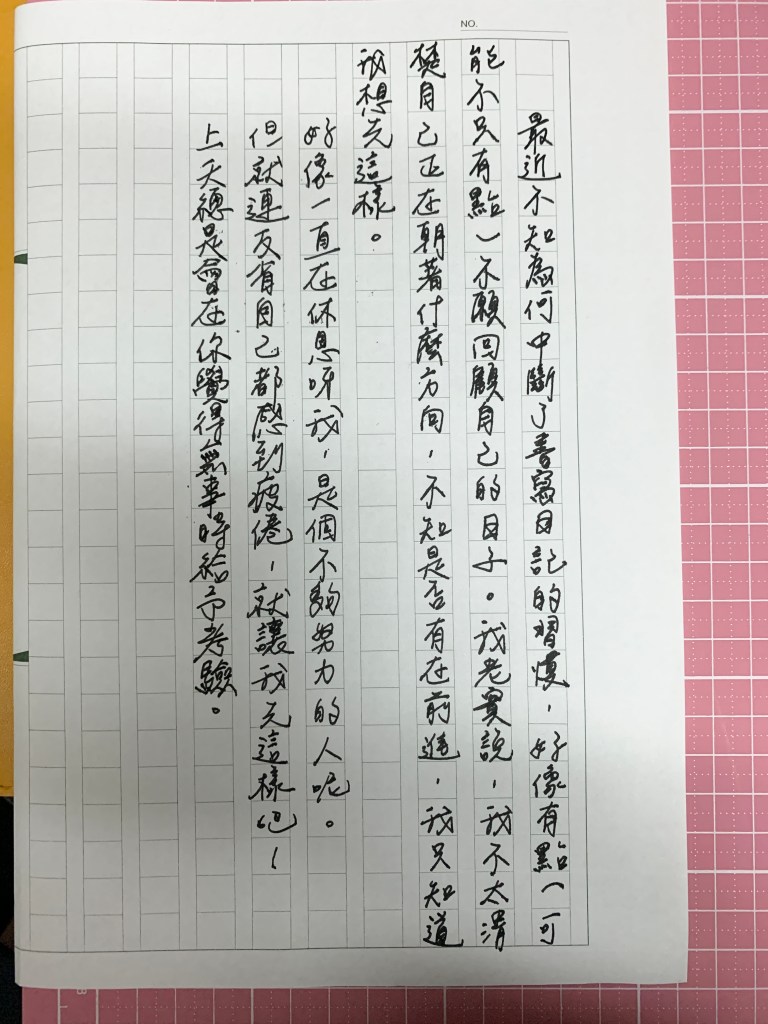 NO.
最近不知為何中斷了書寫日記的習慣，好像有點（可
能不只有點）不願回顧自己的日子。我老實說，我不太清
楚自己正在朝著什麼方向，不知是否有在前進，我只知道
我想先這樣。
好像一直在休息呀我，是個不夠努力的人呢。
但就連反省自己都感到疲倦，就讓我先這樣吧！
上天總是會在你覺得無事時給予考驗。